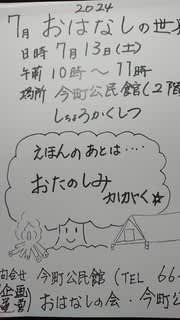 2024
7月 おはなしの世界
日時 7月13日(土)
午前 10時～11時
場所 今町公民館(2階
しちょうかくしつ
えほんのあとは‥‥
おたのしみ
かいがやく☆
問合せ 今町公民館 (TEL 66-
企画
運営) おはなしの会・今町公